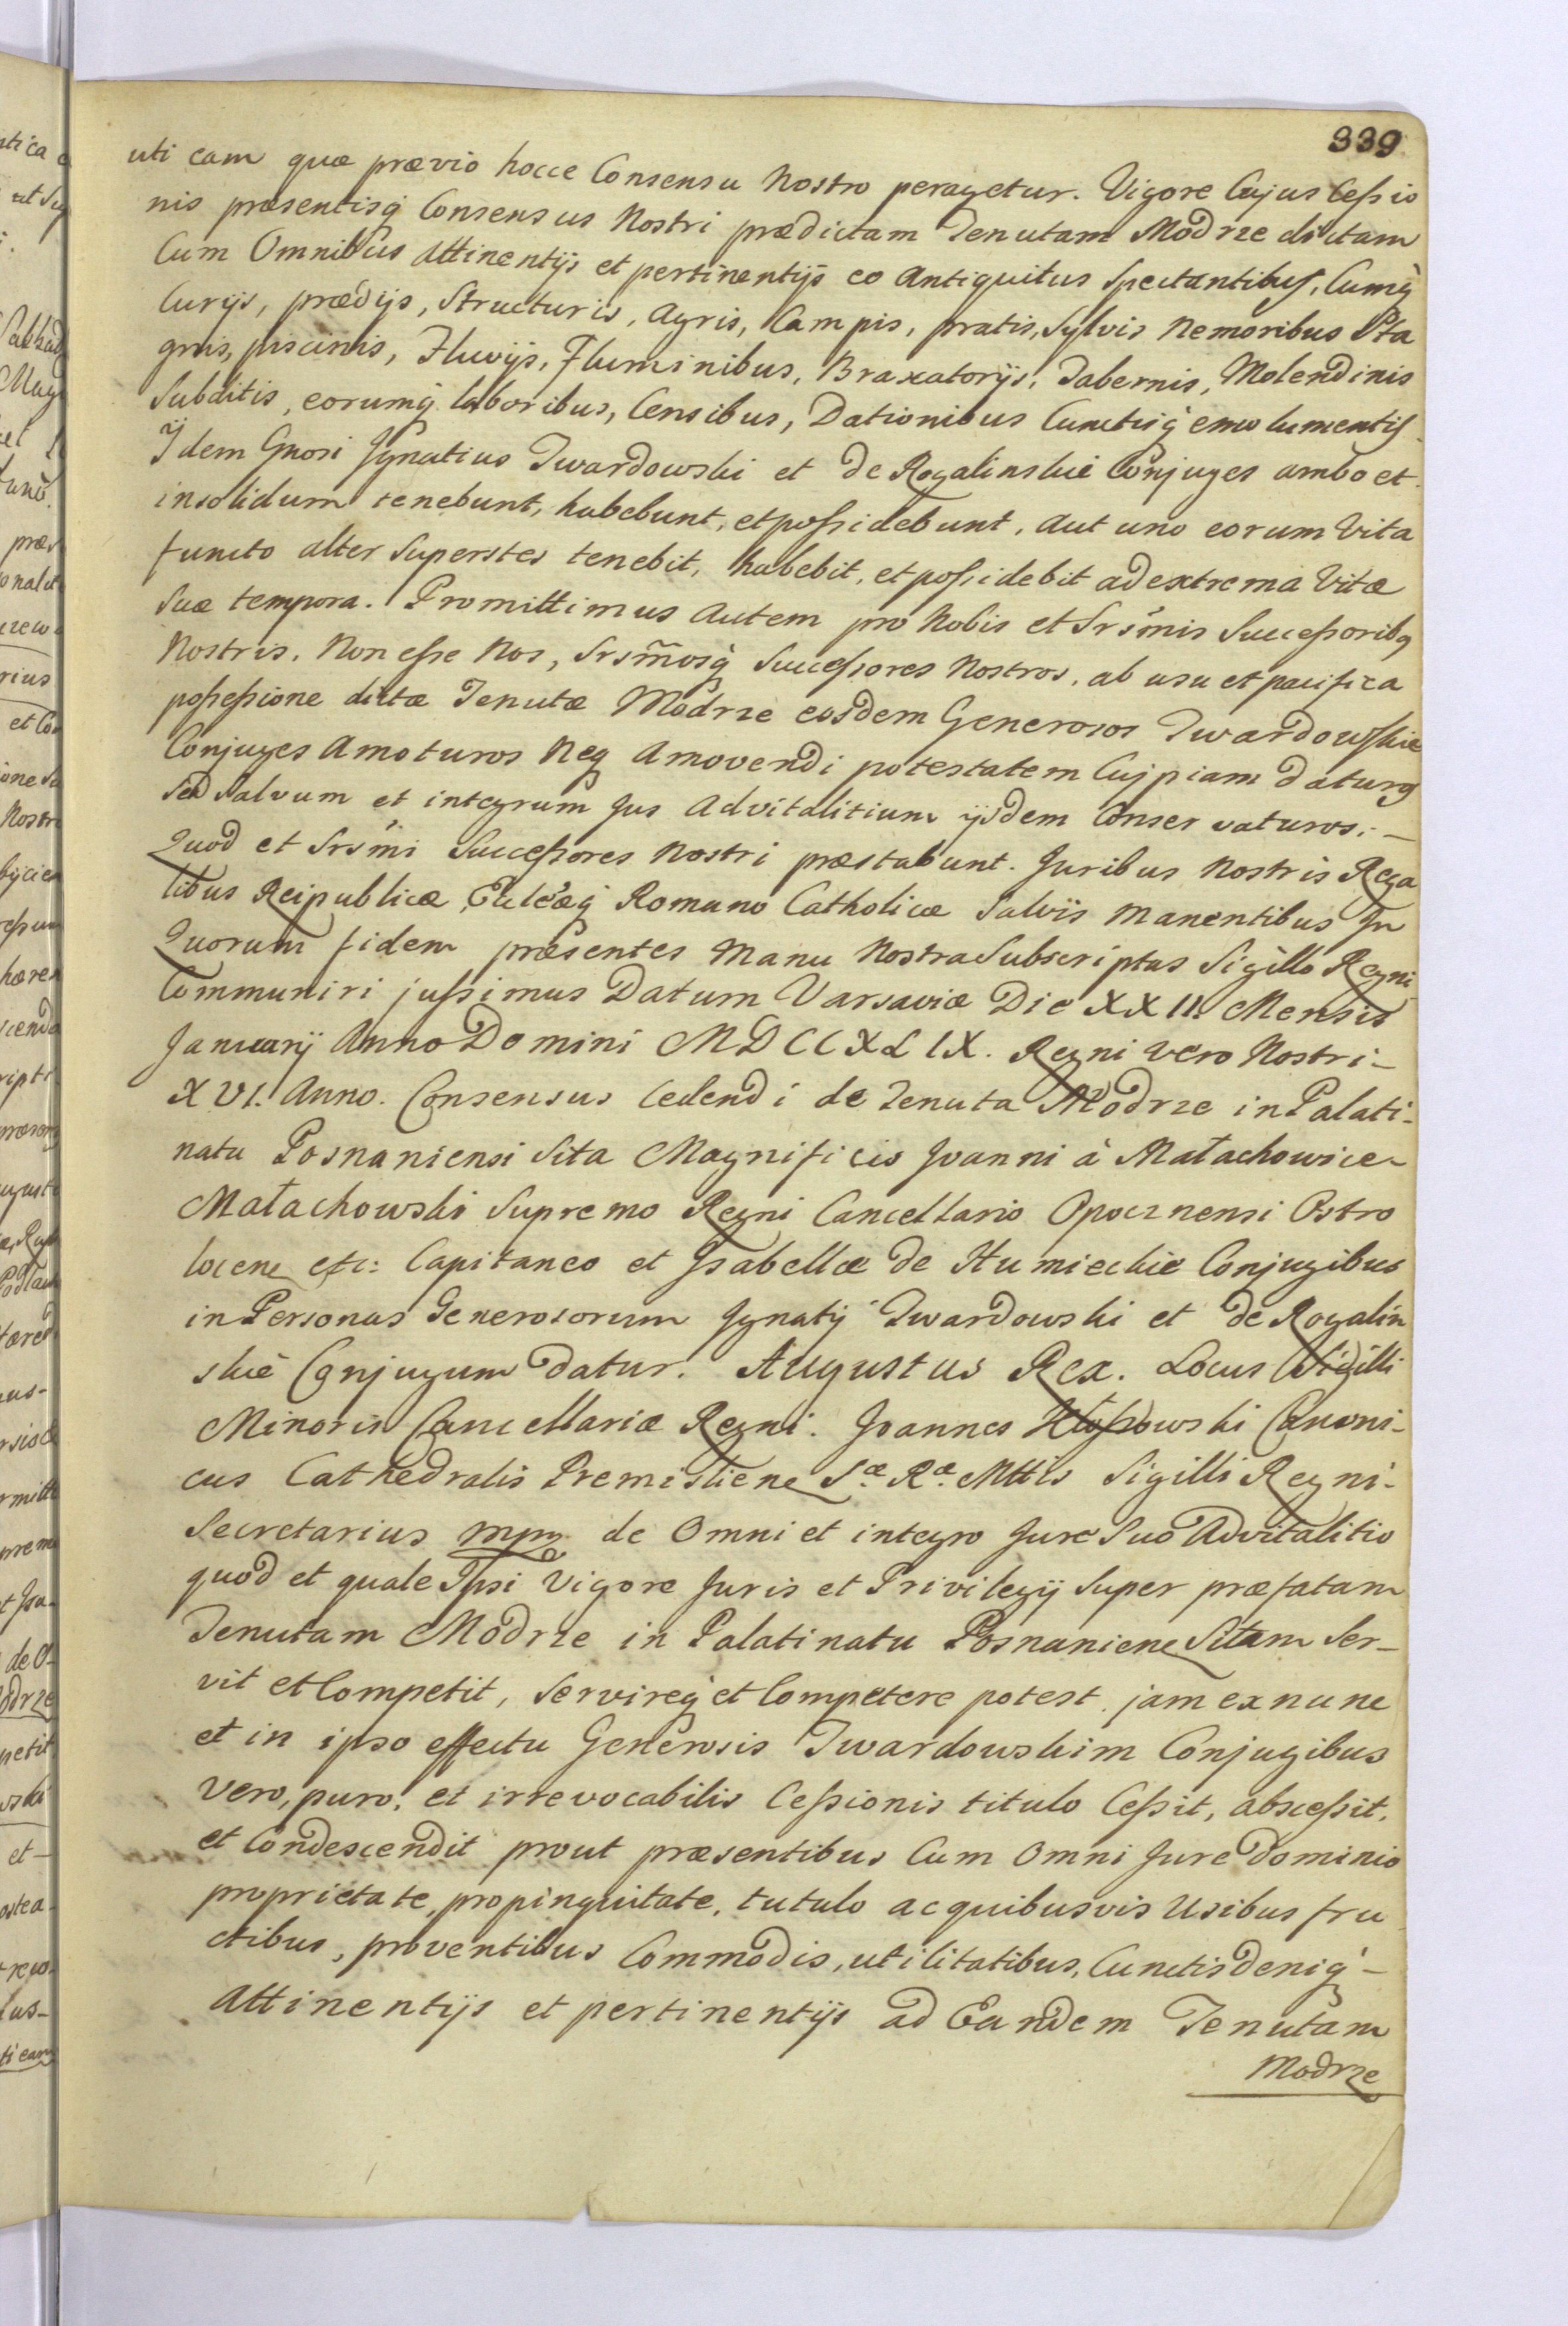 339
uti eam quæ prævio hocce Consensu Nostro peragetur. Vigore Cujus Cessio
nis præsentisq Consensus Nostri prædictam Tenutam Modrze dictam
Cum Omnibus Attinentijs et pertinentijs eo Antiquitus Spectantibus, Cumq
Curijs, prædijs, Structuris, Agris, Campis, pratis, Sylvis Nemoribus Sta
gnis, piscinis, Fluvijs, Fluminibus, Braxatorijs, Tabernis, Molendinis
Subditis, eorumq laboribus, Censibus, Dationibus Cunctisq emolumentis
Ijdem Gnosi Ignatius Twardowski et de Rogalinskie Conjuges ambo et
insolidum tenebunt, habebunt, et possidebunt, aut uno eorum Vita
functo alter Superstes tenebit, habebit, et possidebit ad extrema Vitæ
Suæ tempora. Promittimus Autem pro Nobis et Srsmis Successoribq
Nostris, Non esse Nos, Srsm̃osq Successores Nostros, ab usu et pacifica
possessione dictæ Tenutæ Modrze eosdem Generosos Twardowskie
Conjuges Amoturos Neq Amovendi potestatem Cujpiam daturq
Sed Salvum et integrum Jus Advitalitium ijsdem Conservaturos. –
Quod et Srsmi Successores Nostri præstabunt. Juribus Nostris Rega
libus Reipublicæ, Eccleæq Romano Catholicæ Salvis Manentibus In
Quorum fidem præsentes Manu Nostra Subscriptas Sigillo Regni
Communiri jussimus Datum Varsaviæ Die XXII. Mensis
Januarij Anno Domini MDCCXLIX. Regni Vero Nostri –
XVI. Anno. Consensus Cedendi de Tenuta Modrze in Palati-
natu Posnaniensi Sita Magnificis Joanni à Małachowice
Małachowski Supremo Regni Cancellario Opocznensi Ostro
locene etc: Capitaneo et Isabellæ de Humieckie Conjugibus
in Personas Generosorum Ignatij Twardowski et de Rogalin
skie Conjugum Datur. Augustus Rex. Locus Sigilli
Minoris Cancellariæ Regni. Joannes Kłossowski Canoni-
cus Cathedralis Premisliene Sæ. Ræ. Mttis Sigilli Regni-
Secretarius mpp de Omni et integro Jure Suo Advitalitio
quod et quale Ipsi Vigore Juris et Privilegij Super præfatam
Tenutam Modrze in Palatinatu Posnaniene Sitam Ser-
vit et Competit, Servireq et Competere potest, jam ex nunc
et in ipso effectu Generosis Twardowskim Conjugibus
Vero, puro, et irrevocabilis Cessionis titulo Cessit, abscessit,
et Condescendit prout præsentibus Cum Omni Jure Dominio
proprietate, propinquitate, tutulo ac quibusvis Usibus fru
ctibus, proventibus Commodis, utilitatibus, Cunctis deniq –
Attinentijs et pertinentijs ad Eandem Tenutam
Modrze